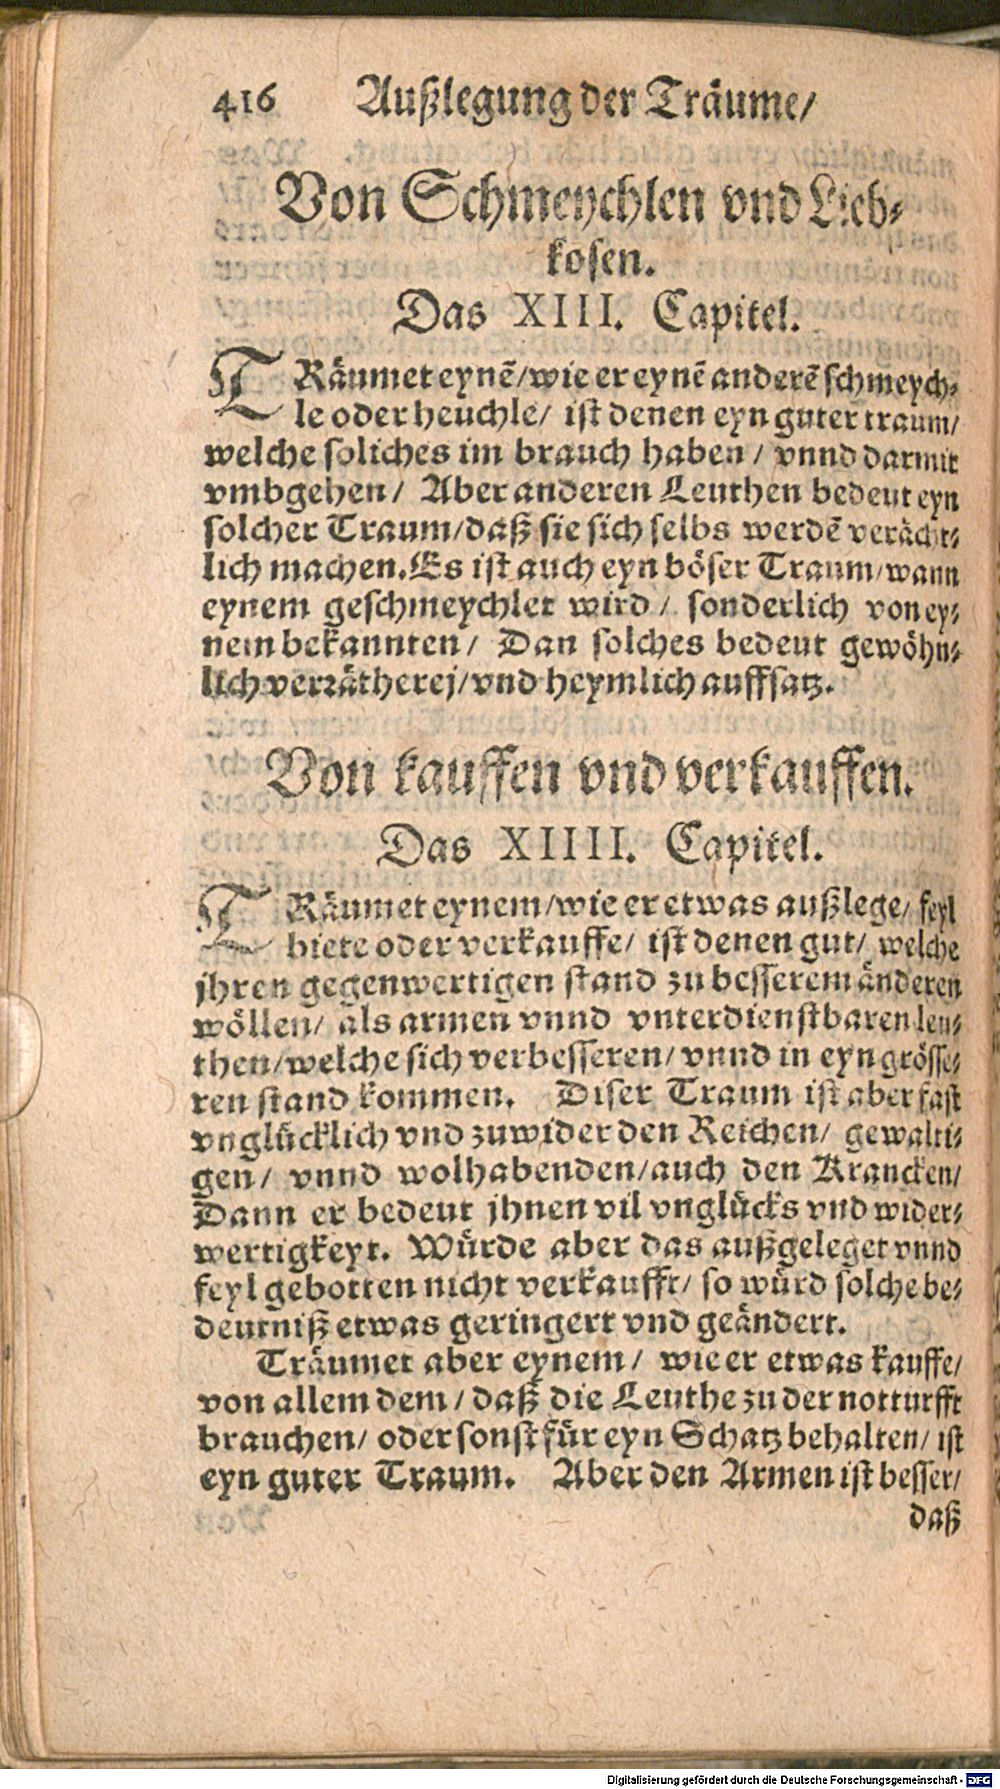 416 Außlegung der Träume/
Von Schmeychlen vnd Lieb⸗
kosen.
Das XIII. Capitel.
TRäumet eynẽ/wie er eynẽ anderẽ schmeych⸗
le oder heuchle/ ist denen eyn guter traum/
welche soliches im brauch haben / vnnd darmit
vmbgehen/ Aber anderen Leuthen bedeut eyn
solcher Traum/daß sie sich selbs werdẽ verächt⸗
lich machen. Es ist auch eyn böser Traum/wann
eynem geschmeychlet wird / sonderlich von ey⸗
nem bekannten/ Dan solches bedeut gewöhn⸗
lich verrätherej/vnd heymlich auffsatz.
Von kauffen vnd verkauffen.
Das XIIII. Capitel.
TRäumet eynem/wie er etwas außlege/ feyl
biete oder verkauffe/ ist denen gut/ welche
jhren gegenwertigen stand zu besserem änderen
wöllen/ als armen vnnd vnterdienstbaren leu⸗
then/welche sich verbesseren/ vnnd in eyn grösse⸗
ren stand kommen. Diser Traum ist aber fast
vnglücklich vnd zuwider den Reichen/ gewalti⸗
gen/ vnnd wolhabenden/auch den Krancken/
Dann er bedeut jhnen vil vnglücks vnd wider⸗
wertigkeyt. Würde aber das außgeleget vnnd
feyl gebotten nicht verkaufft/ so würd solche be⸗
deutniß etwas geringert vnd geändert.
Träumet aber eynem/ wie er etwas kauffe/
von allem dem / daß die Leuthe zu der notturfft
brauchen/ oder sonst für eyn Schatz behalten/ ist
eyn guter Traum. Aber den Armen ist besser/
daß
Digitalisierung gefördert durch die Deutsche Forschungsgemeinschaft - DFG